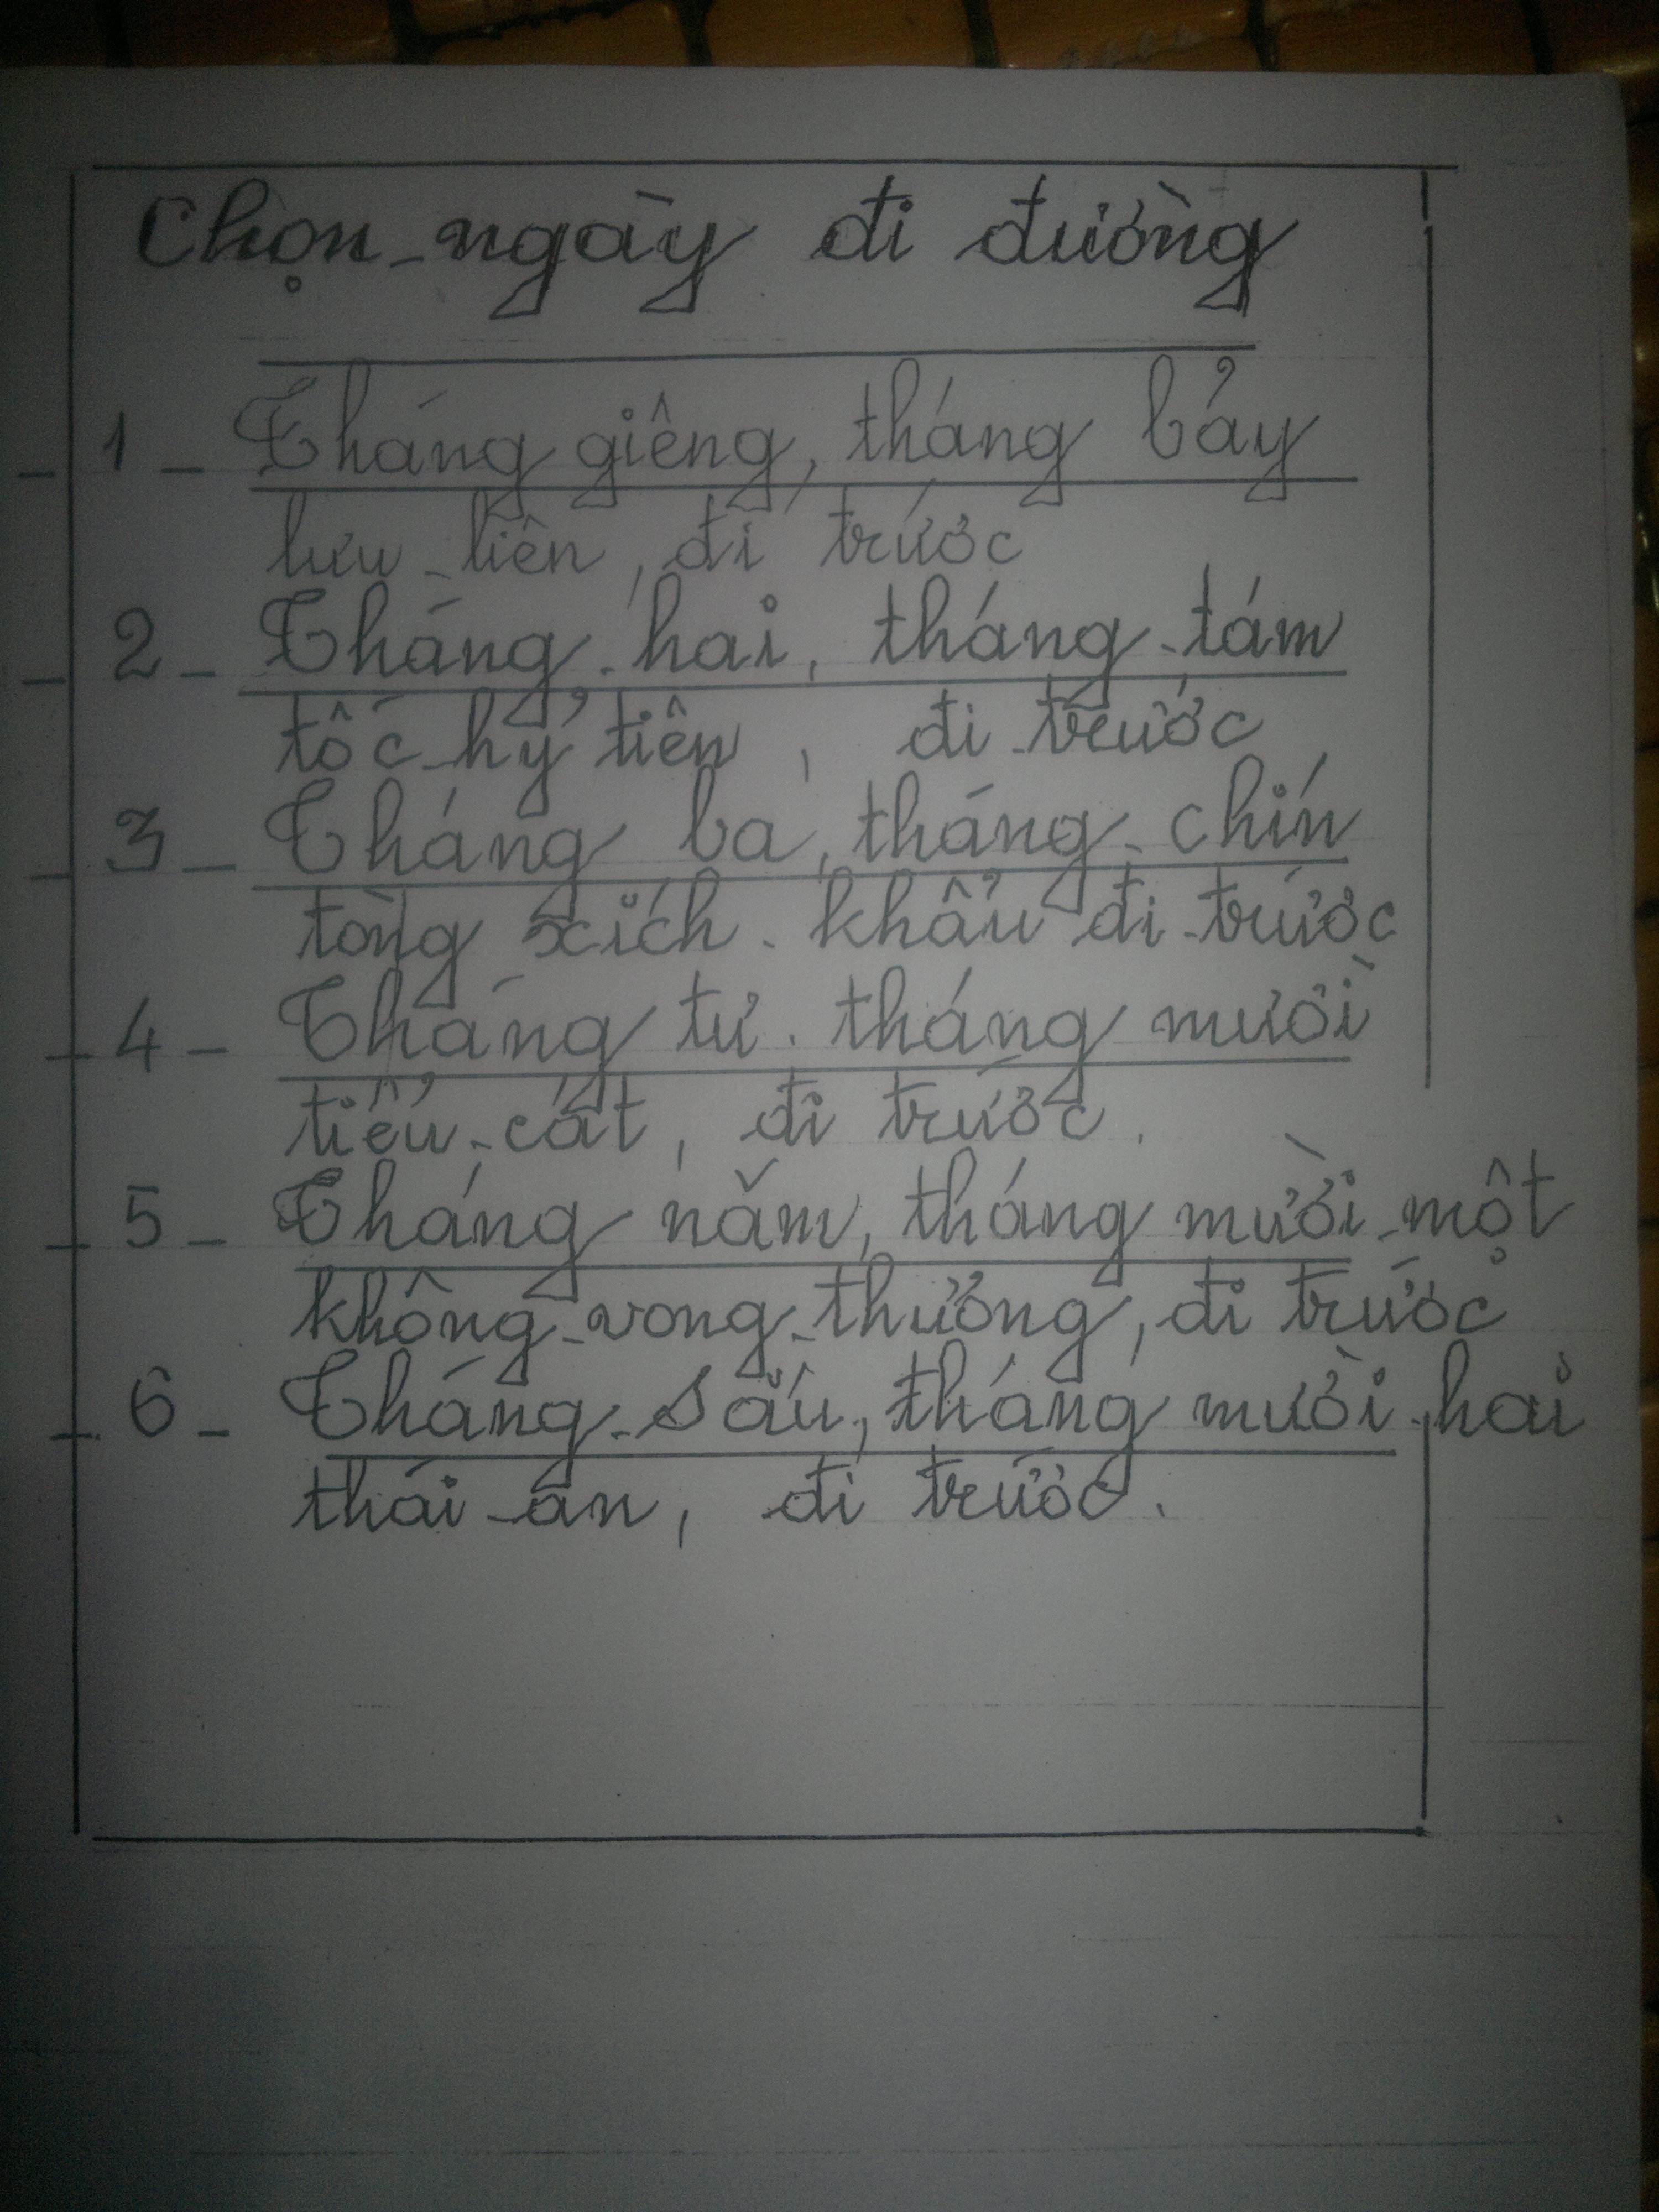 Chọn ngày đi đường
1 - Tháng giêng, tháng bảy
lưu - liên, đi trước
2 - Tháng hai, tháng tám
tốc hỷ tiên, đi trước
3 - Tháng ba, tháng chín
tòng xích khẩu đi trước
4 - Tháng tư. tháng mười
tiểu cát, đi trước.
5 - Tháng năm, tháng mười một
không vong thưởng, đi trước
6 - Tháng sáu, tháng mười hai
thái ân, đi trước.